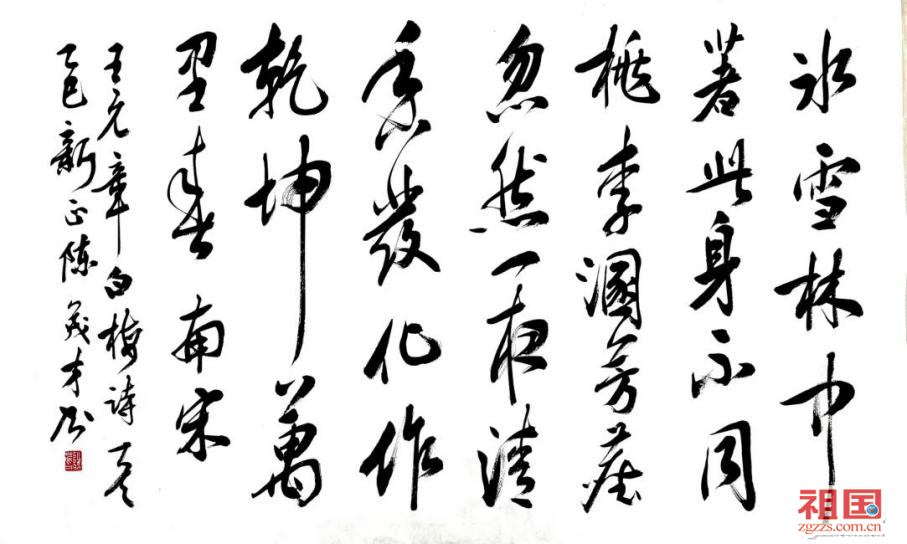 冰雪林中
著此身不同
桃李溷芳塵
忽然一夜清
香發化作
乾坤萬
里春 南宋
王元章白梅詩
乙巳新正陳茂才書
祖国
zgzzs.com.cn